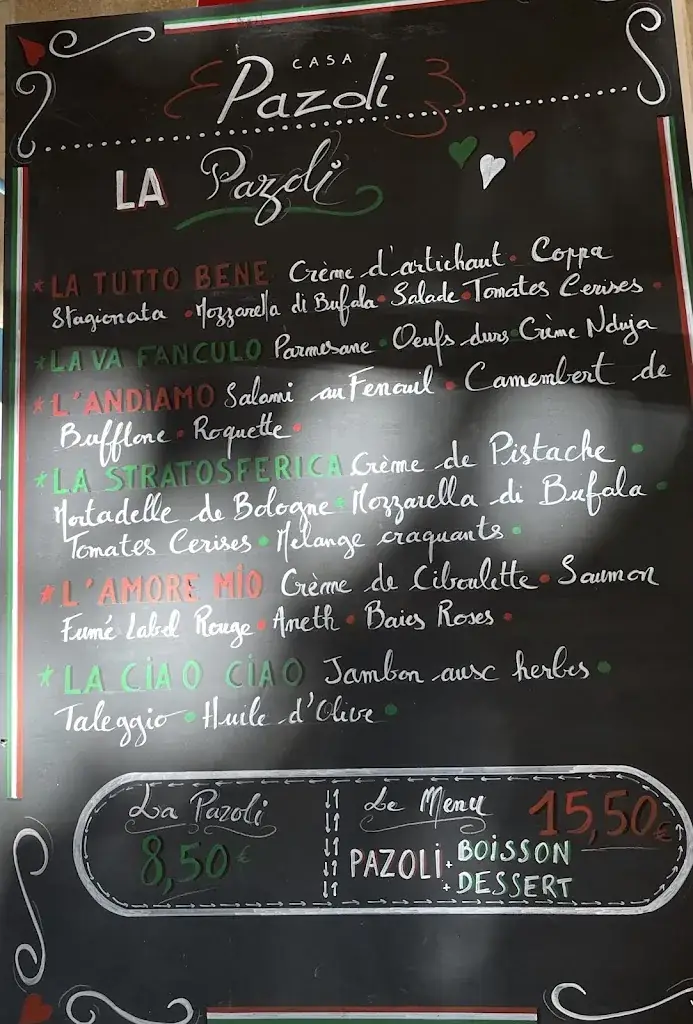 CASA
Pazoli
LA Pazoli
* LA TUTTO BENE Crème d'artichaut • Coppa
Stagionata • Mozzarella di Bufala • Salade • Tomates Cerises •
* LA VA FANCULO Parmesane • Oeufs durs • Crème Nduja
* L'ANDIAMO Salami au Fenouil • Camembert de
Bufflone • Roquette •
* LA STRATOSFERICA Crème de Pistache •
Mortadelle de Bologne • Mozzarella di Bufala •
Tomates Cerises • Mélange craquants •
* L'AMORE MIO Crème de Ciboulette • Saumon
Fumé Label Rouge • Aneth • Baies Roses •
* LA CIAO CIAO Jambon aux herbes •
Taleggio • Huile d'Olive •
La Pazoli
8,50€
Le Menu 15,50€
PAZOLI + BOISSON
+ DESSERT